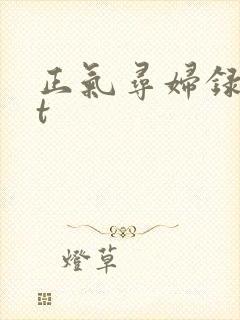 正氣尋婦録
t
燈草